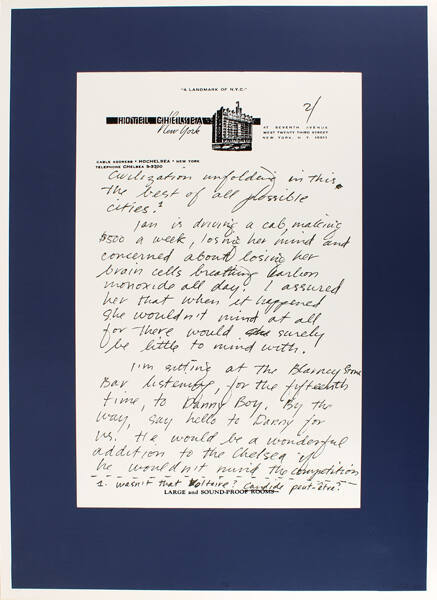 "A LANDMARK OF N.Y.C."
2/
HOTEL CHELSEA
New York
AT SEVENTH AVENUE
WEST TWENTY THIRD STREET
NEW YORK, N.Y. 10011
CABLE ADDRESS • HOCHELSEA • NEW YORK
TELEPHONE CHELSEA 3-3700
Civilization unfolding in this,
the best of all possible
cities.¹
Jan is driving a cab, making
$500 a week, losing her mind and
concerned about losing her
brain cells breathing carbon
monoxide all day. I assured
her that when it happened
she wouldn't mind at all
for there would surely
be little to mind with.
I'm sitting at the Blarney Stone
Bar listening, for the fifteenth
time, to Danny Boy. By the
way, say hello to Danny for
us. He would be a wonderful
addition to the Chelsea if
he wouldn't mind the competition
1. wasn't that Voltaire? Candide peut-être?
LARGE and SOUND-PROOF ROOMS